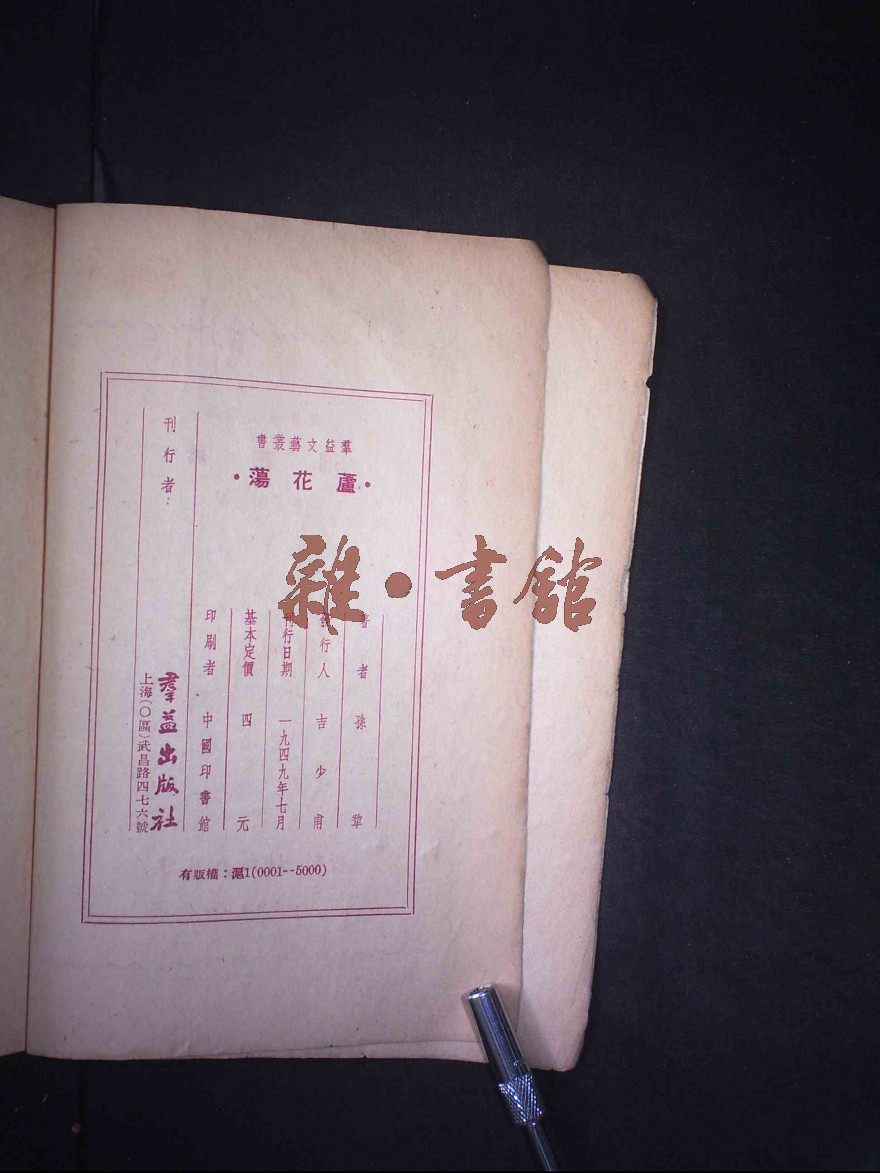 羣益文藝叢書
·蘆花蕩·
著者 孫犂
發行人 吉少甫
刊行日期 一九四九年七月
基本定價 四元
印刷者 中國印書館
刊行者：
羣益出版社
上海(〇區)武昌路四七六號
有版權：滬1(0001--5000)
雜·書館